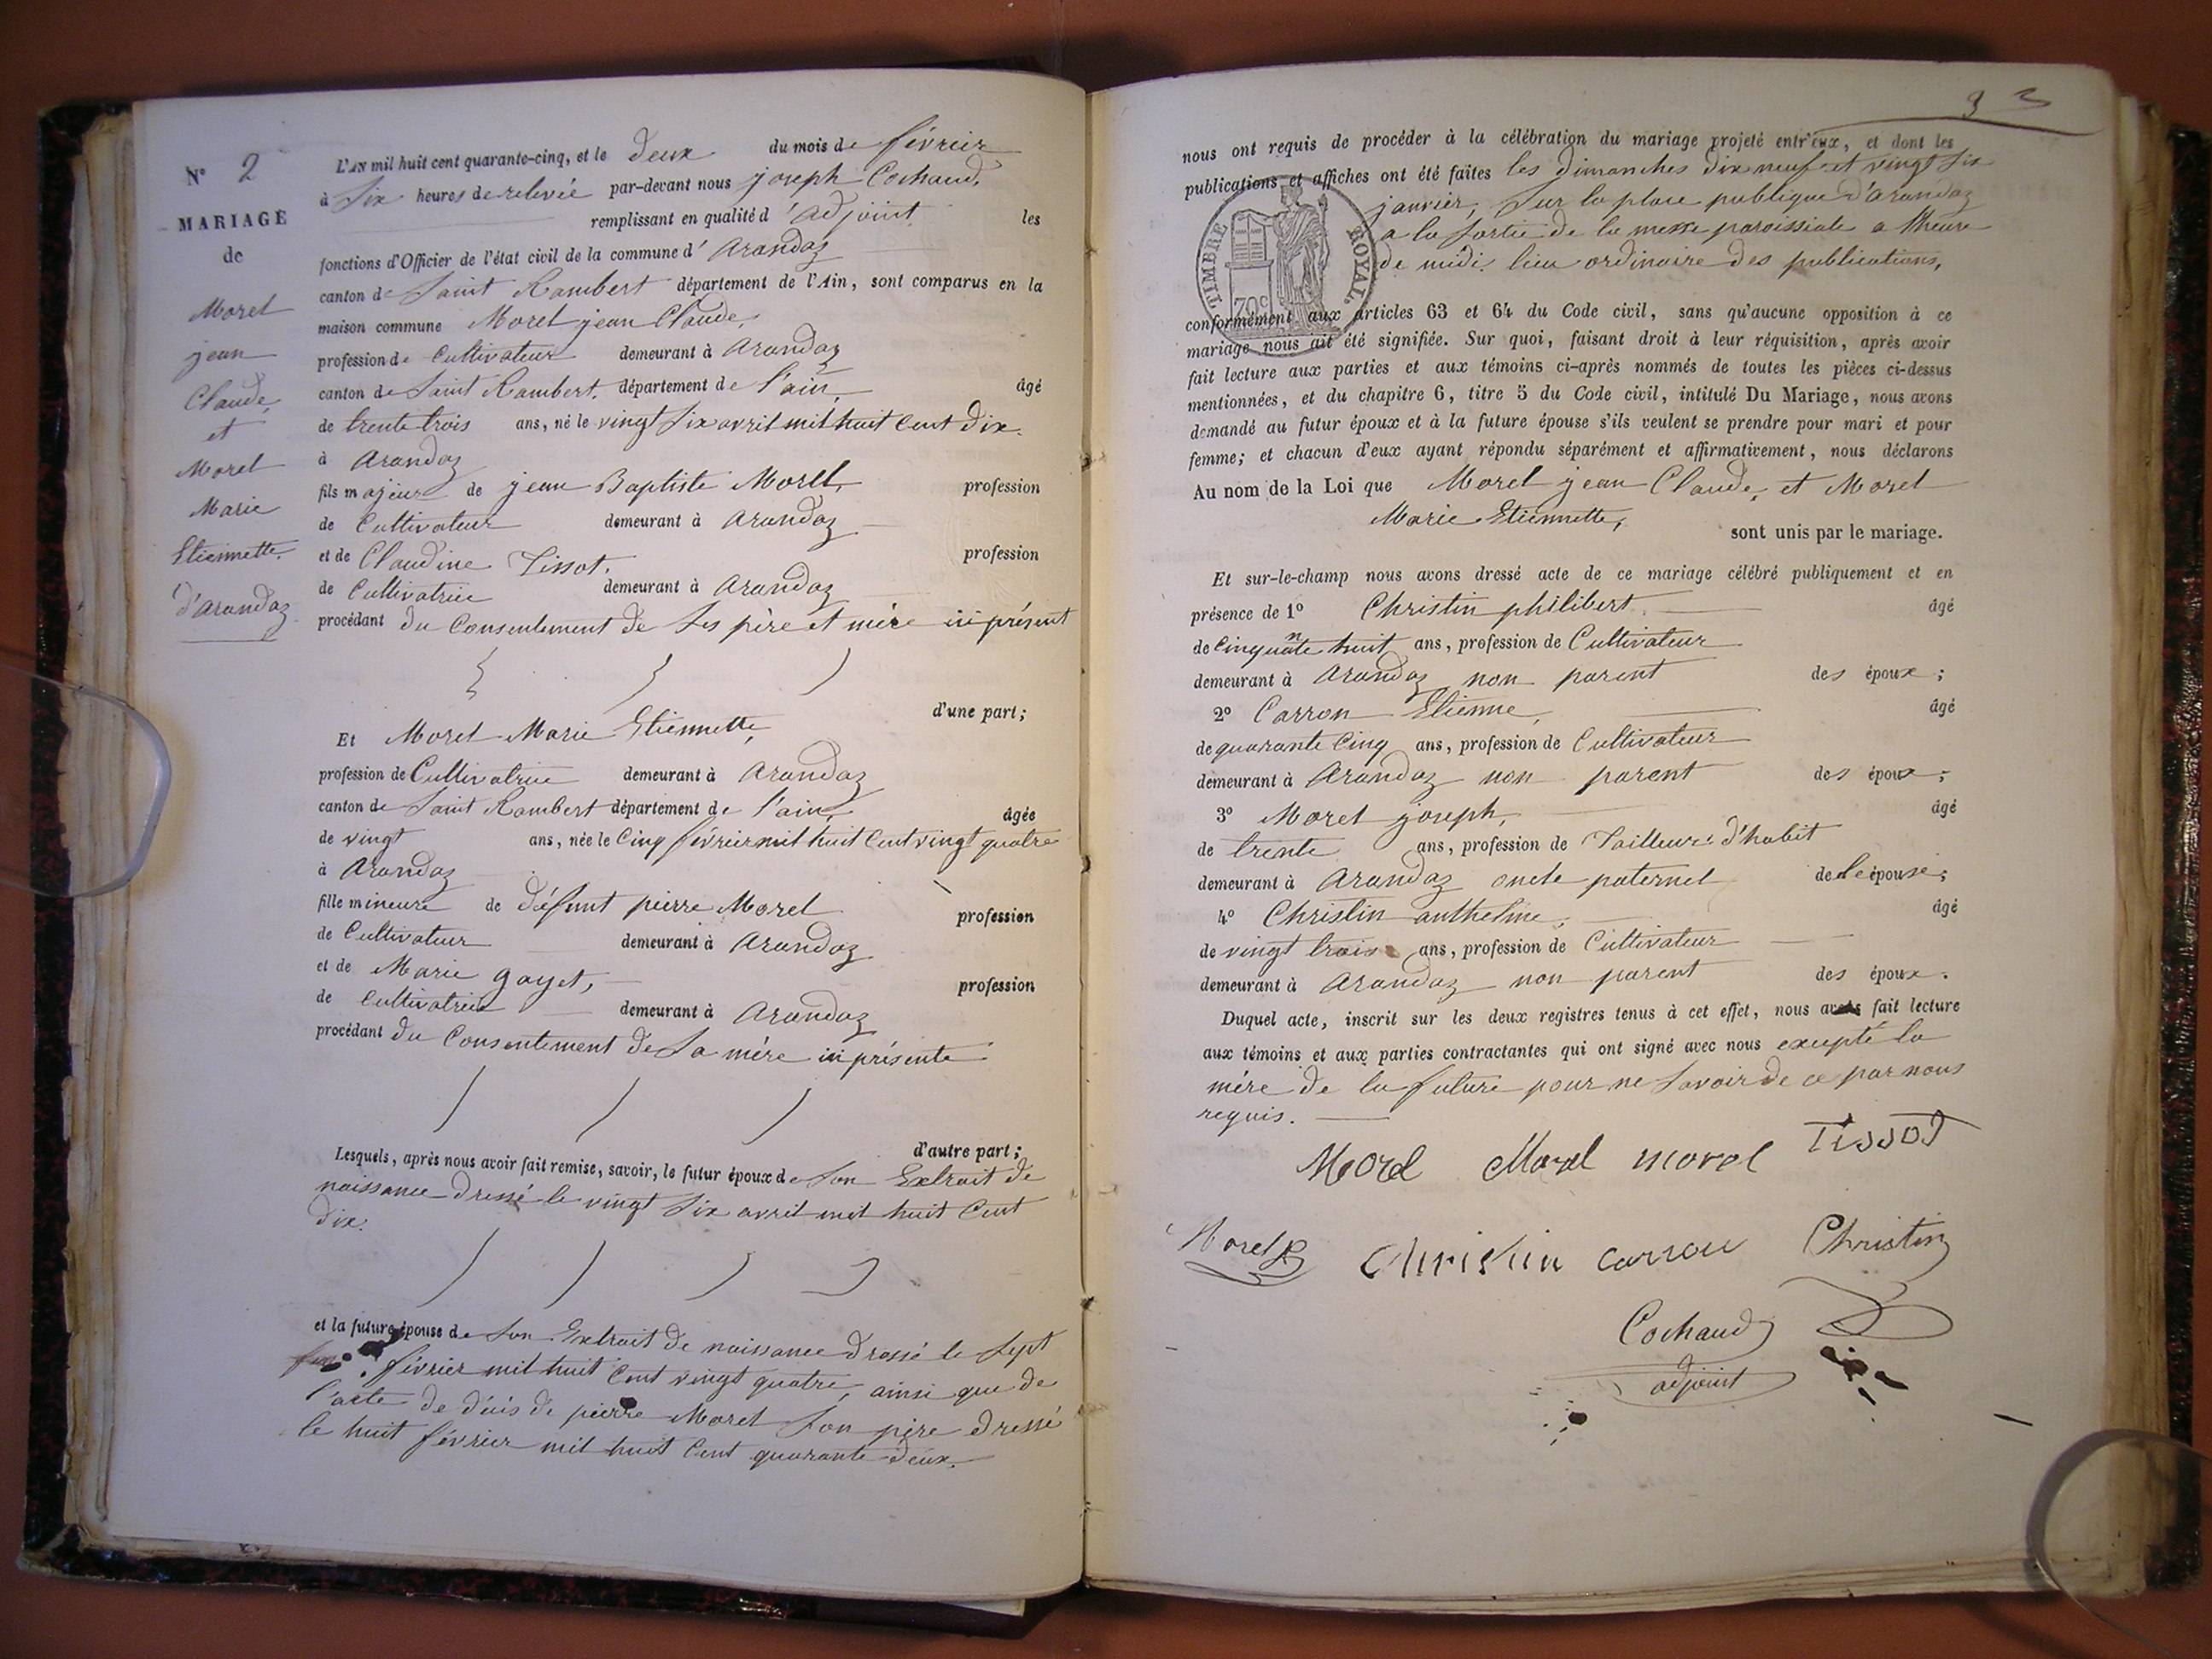 N° 2
MARIAGE
de
Morel
jean
Claude,
et
Morel
Marie
Etiennette.
d'arandaz
L'AN mil huit cent quarante-cinq, et le deux du mois de février
à six heures de relevée par-devant nous joseph Cochaud,
remplissant en qualité d'adjoint les
fonctions d'Officier de l'état civil de la commune d'arandaz
canton de Saint Rambert département de l'Ain, sont comparus en la
maison commune Morel jean Claude,
profession de Cultivateur demeurant à arandaz
canton de Saint Rambert, département de l'ain, âgé
de trente trois ans, né le vingt six avril mil huit cent dix
à arandaz
fils majeur de jean Baptiste Morel, profession
de Cultivateur demeurant à arandaz
et de Claudine Tissot. profession
de Cultivatrice demeurant à arandaz
procédant du Consentement de ses père et mère ici présent
d'une part;
Et Morel Marie Etiennette,
profession de Cultivatrice demeurant à arandaz
canton de Saint Rambert département de l'ain, âgée
de vingt ans, née le Cinq février mil huit Cent vingt quatre
à arandaz
fille mineure de défunt pierre Morel profession
de Cultivateur demeurant à arandaz
et de Marie gayet, profession
de cultivatrice demeurant à arandaz
procédant du Consentement de sa mère ici présente
d'autre part;
Lesquels, après nous avoir fait remise, savoir, le futur époux de son Extrait de
naissance dressé le vingt six avril mil huit Cent
dix.
et la future épouse de son Extrait de naissance dressé le sept
février mil huit Cent vingt quatre, ainsi que de
l'acte de décis de pierre Morel son père dressé
le huit février mil huit Cent quarante deux.
3 3
nous ont requis de procéder à la célébration du mariage projeté entr'eux, et dont les
publications et affiches ont été faites les dimanches dix neuf et vingt six
janvier, sur la place publique d'arandaz
a la sortie de la messe paroissiale a l'heure
de midi, lieu ordinaire des publications,
TIMBRE ROYAL.
70c
conformément aux articles 63 et 64 du Code civil, sans qu'aucune opposition à ce
mariage nous ait été signifiée. Sur quoi, faisant droit à leur réquisition, après avoir
fait lecture aux parties et aux témoins ci-après nommés de toutes les pièces ci-dessus
mentionnées, et du chapitre 6, titre 5 du Code civil, intitulé Du Mariage, nous avons
demandé au futur époux et à la future épouse s'ils veulent se prendre pour mari et pour
femme; et chacun d'eux ayant répondu séparément et affirmativement, nous déclarons
Au nom de la Loi que Morel jean Claude, et Morel
Marie Etiennette,
sont unis par le mariage.
Et sur-le-champ nous avons dressé acte de ce mariage célébré publiquement et en
présence de 1° Christin philibert âgé
de Cinquante huit ans, profession de Cultivateur
demeurant à arandaz non parent des époux;
2° Carron Etienne, âgé
de quarante Cinq ans, profession de Cultivateur
demeurant à arandaz non parent des époux;
3° Morel joseph, âgé
de trente ans, profession de Tailleur d'habit
demeurant à arandaz oncle paternel de l'épouse;
4° Christin anthelme, âgé
de vingt trois ans, profession de Cultivateur
demeurant à arandaz non parent des époux.
Duquel acte, inscrit sur les deux registres tenus à cet effet, nous avons fait lecture
aux témoins et aux parties contractantes qui ont signé avec nous excepté la
mère de la future pour ne savoir de ce par nous
requis.
Morel Morel morel Tissot
Morel Christin carron Christin
Cochaud
adjoint